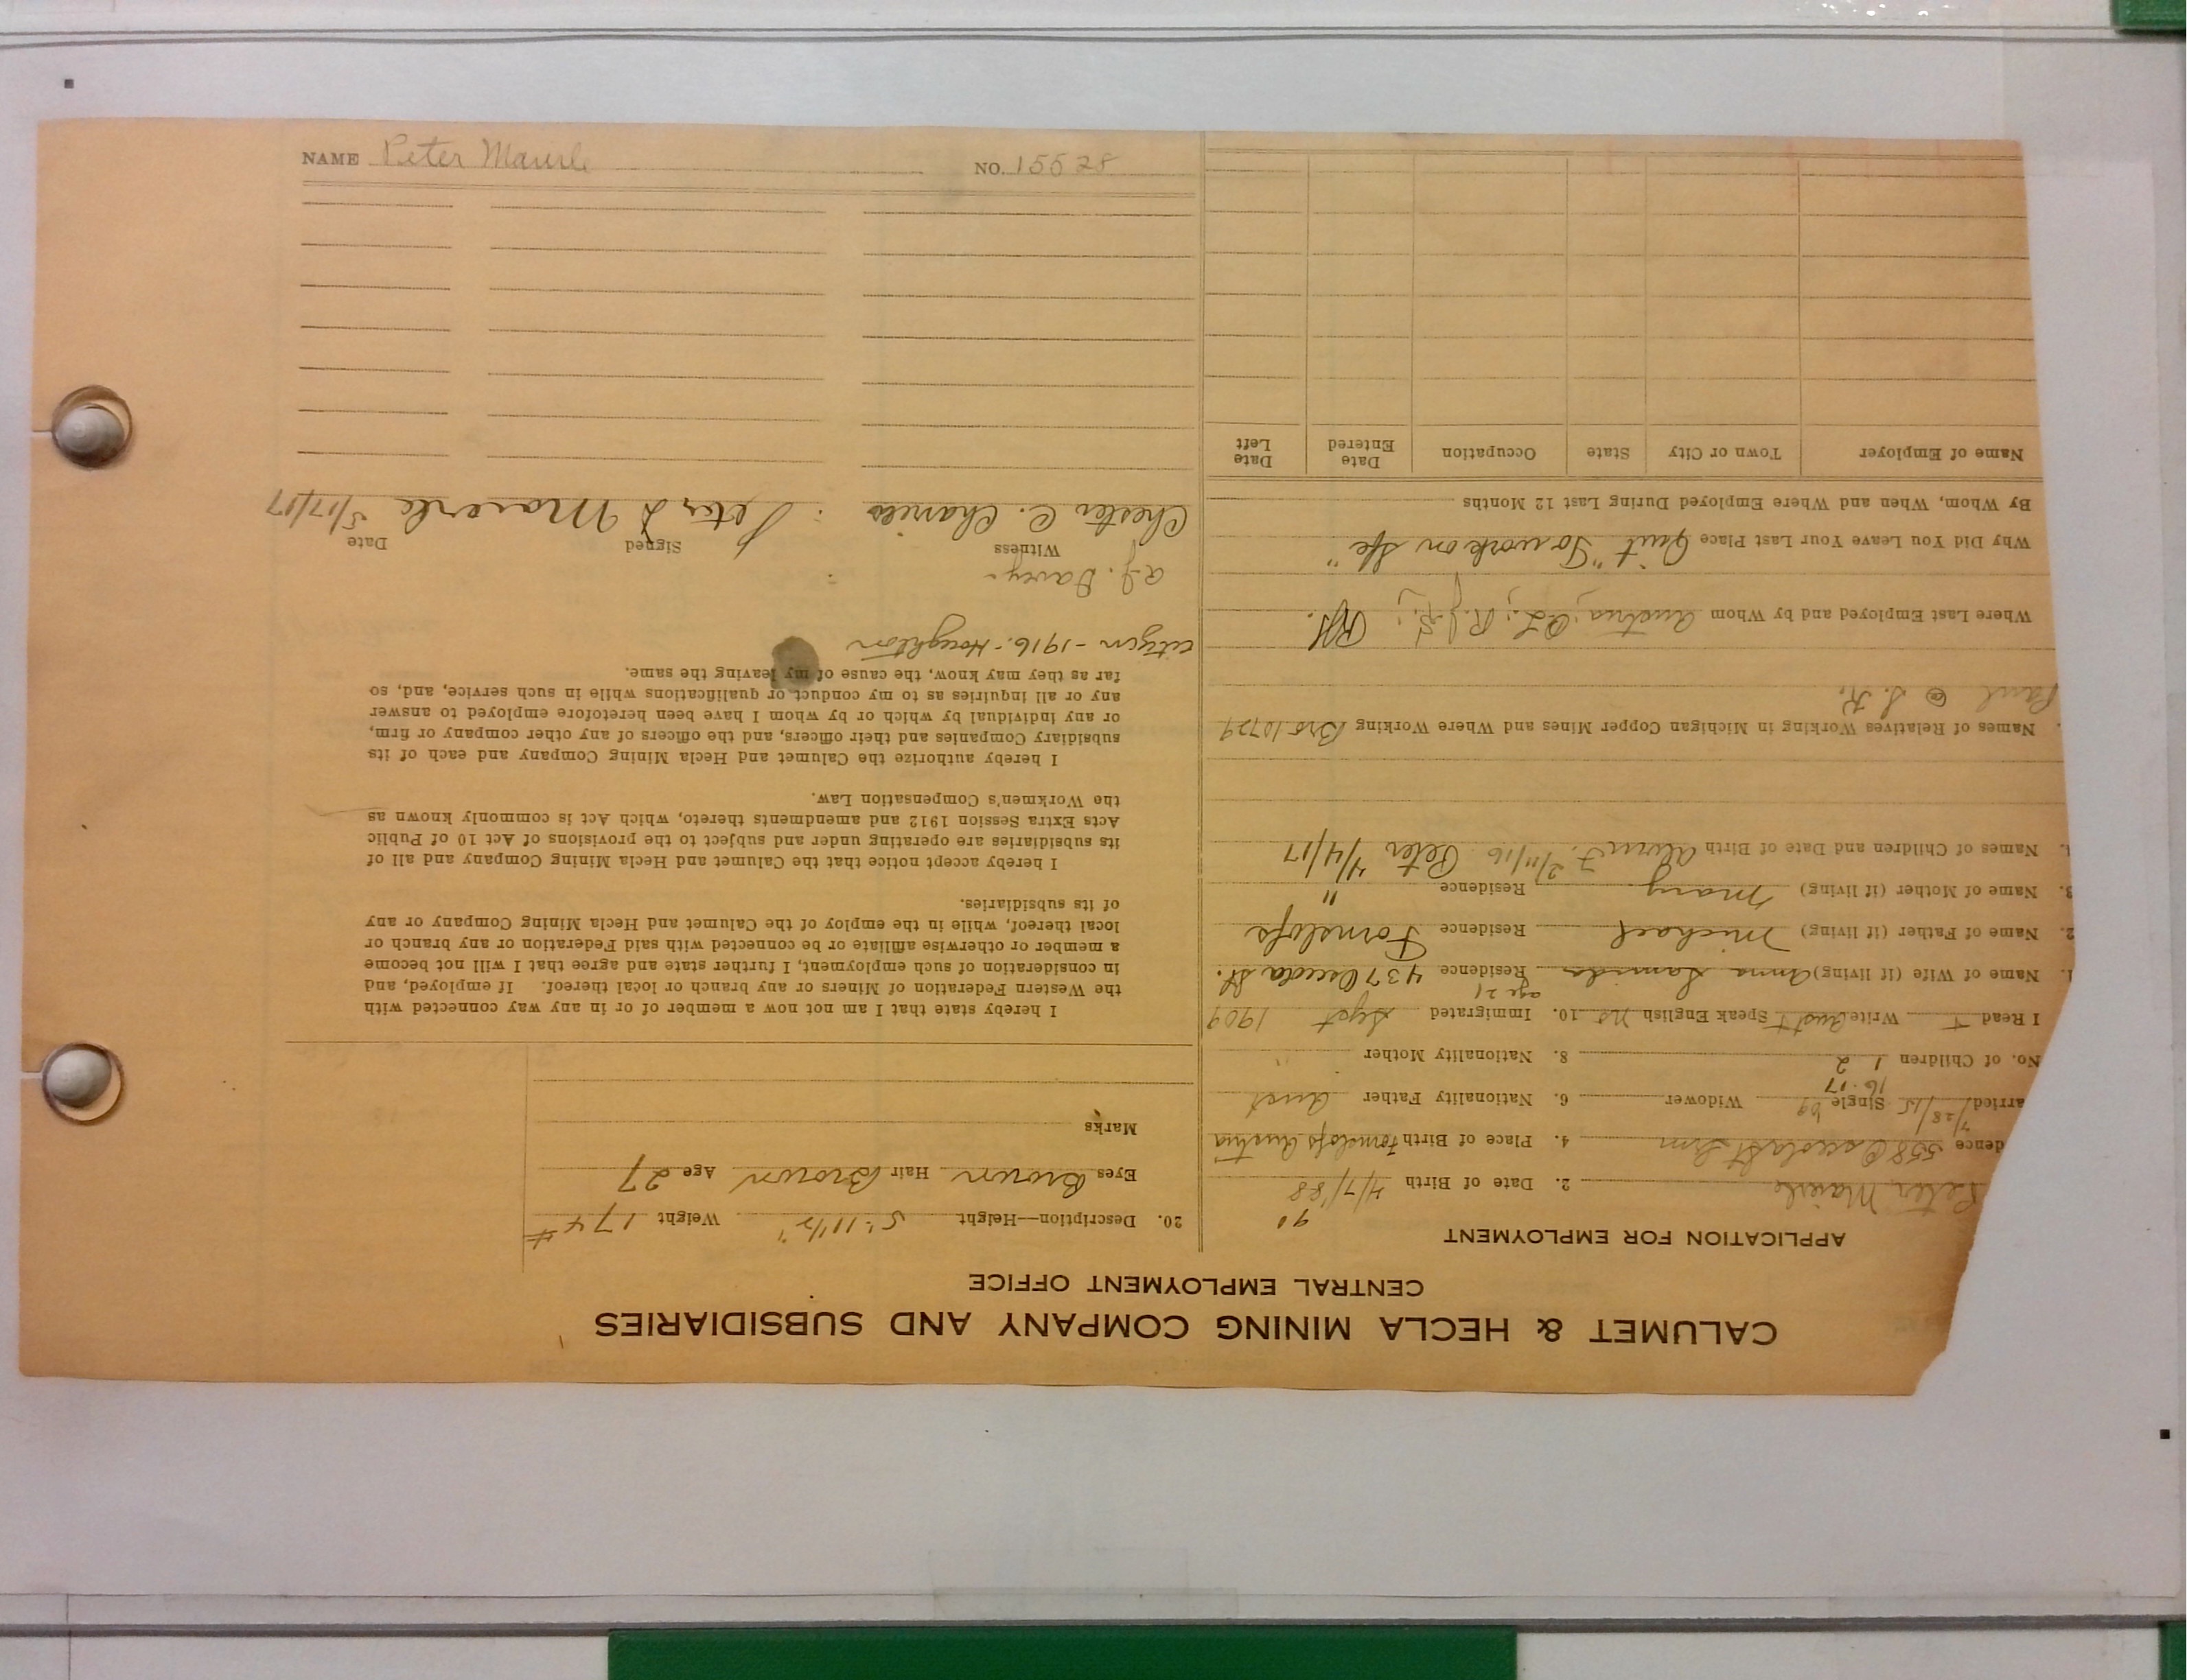 NAME Peter Maurle NO. 15528
CALUMET & HECLA MINING COMPANY AND SUBSIDIARIES
CENTRAL EMPLOYMENT OFFICE
APPLICATION FOR EMPLOYMENT
90
Peter Maierle 2. Date of Birth 4/7/88
dence 558 Osceola St 4. Place of Birth Tornelofs Austria
arried 4/28/15 Single Widower 6. Nationality Father Aust
16-17
No. of Children 1 2 8. Nationality Mother "
I Read + Write Aust + Speak English no 10. Immigrated Sept 1909
age 21
1. Name of Wife (if living) Anna Residence 437 Osceola St.
2. Name of Father (if living) Michael Residence Tornelofs
3. Name of Mother (if living) Mary Residence "
4. Names of Children and Date of Birth 2/11/16 Peter 4/4/17
. Names of Relatives Working in Michigan Copper Mines and Where Working Bro 10729
Paul @ S. K.
Where Last Employed and by Whom Austria;
Why Did You Leave Your Last Place Quit "To work on
By Whom, When and Where Employed During Last 12 Months
Name of Employer Town or City State Occupation Date Entered Date Left
20. Description—Height 5' 11 1/2" Weight 174 #
Eyes Brown Hair Brown Age 27
Marks
I hereby state that I am not now a member of or in any way connected with
the Western Federation of Miners or any branch or local thereof. If employed, and
in consideration of such employment, I further state and agree that I will not become
a member or otherwise affiliate or be connected with said Federation or any branch or
local thereof, while in the employ of the Calumet and Hecla Mining Company or any
of its subsidiaries.
I hereby accept notice that the Calumet and Hecla Mining Company and all of
its subsidiaries are operating under and subject to the provisions of Act 10 of Public
Acts Extra Session 1912 and amendments thereto, which Act is commonly known as
the Workmen's Compensation Law.
I hereby authorize the Calumet and Hecla Mining Company and each of its
subsidiary Companies and their officers, and the officers of any other company or firm,
or any individual by which or by whom I have been heretofore employed to answer
any or all inquiries as to my conduct or qualifications while in such service, and, so
far as they may know, the cause of my leaving the same.
citizen - 1916 - Houghton
A. J. Davey -
Witness Signed Date
Chester C. Charles : Peter Maierle 5/17/17